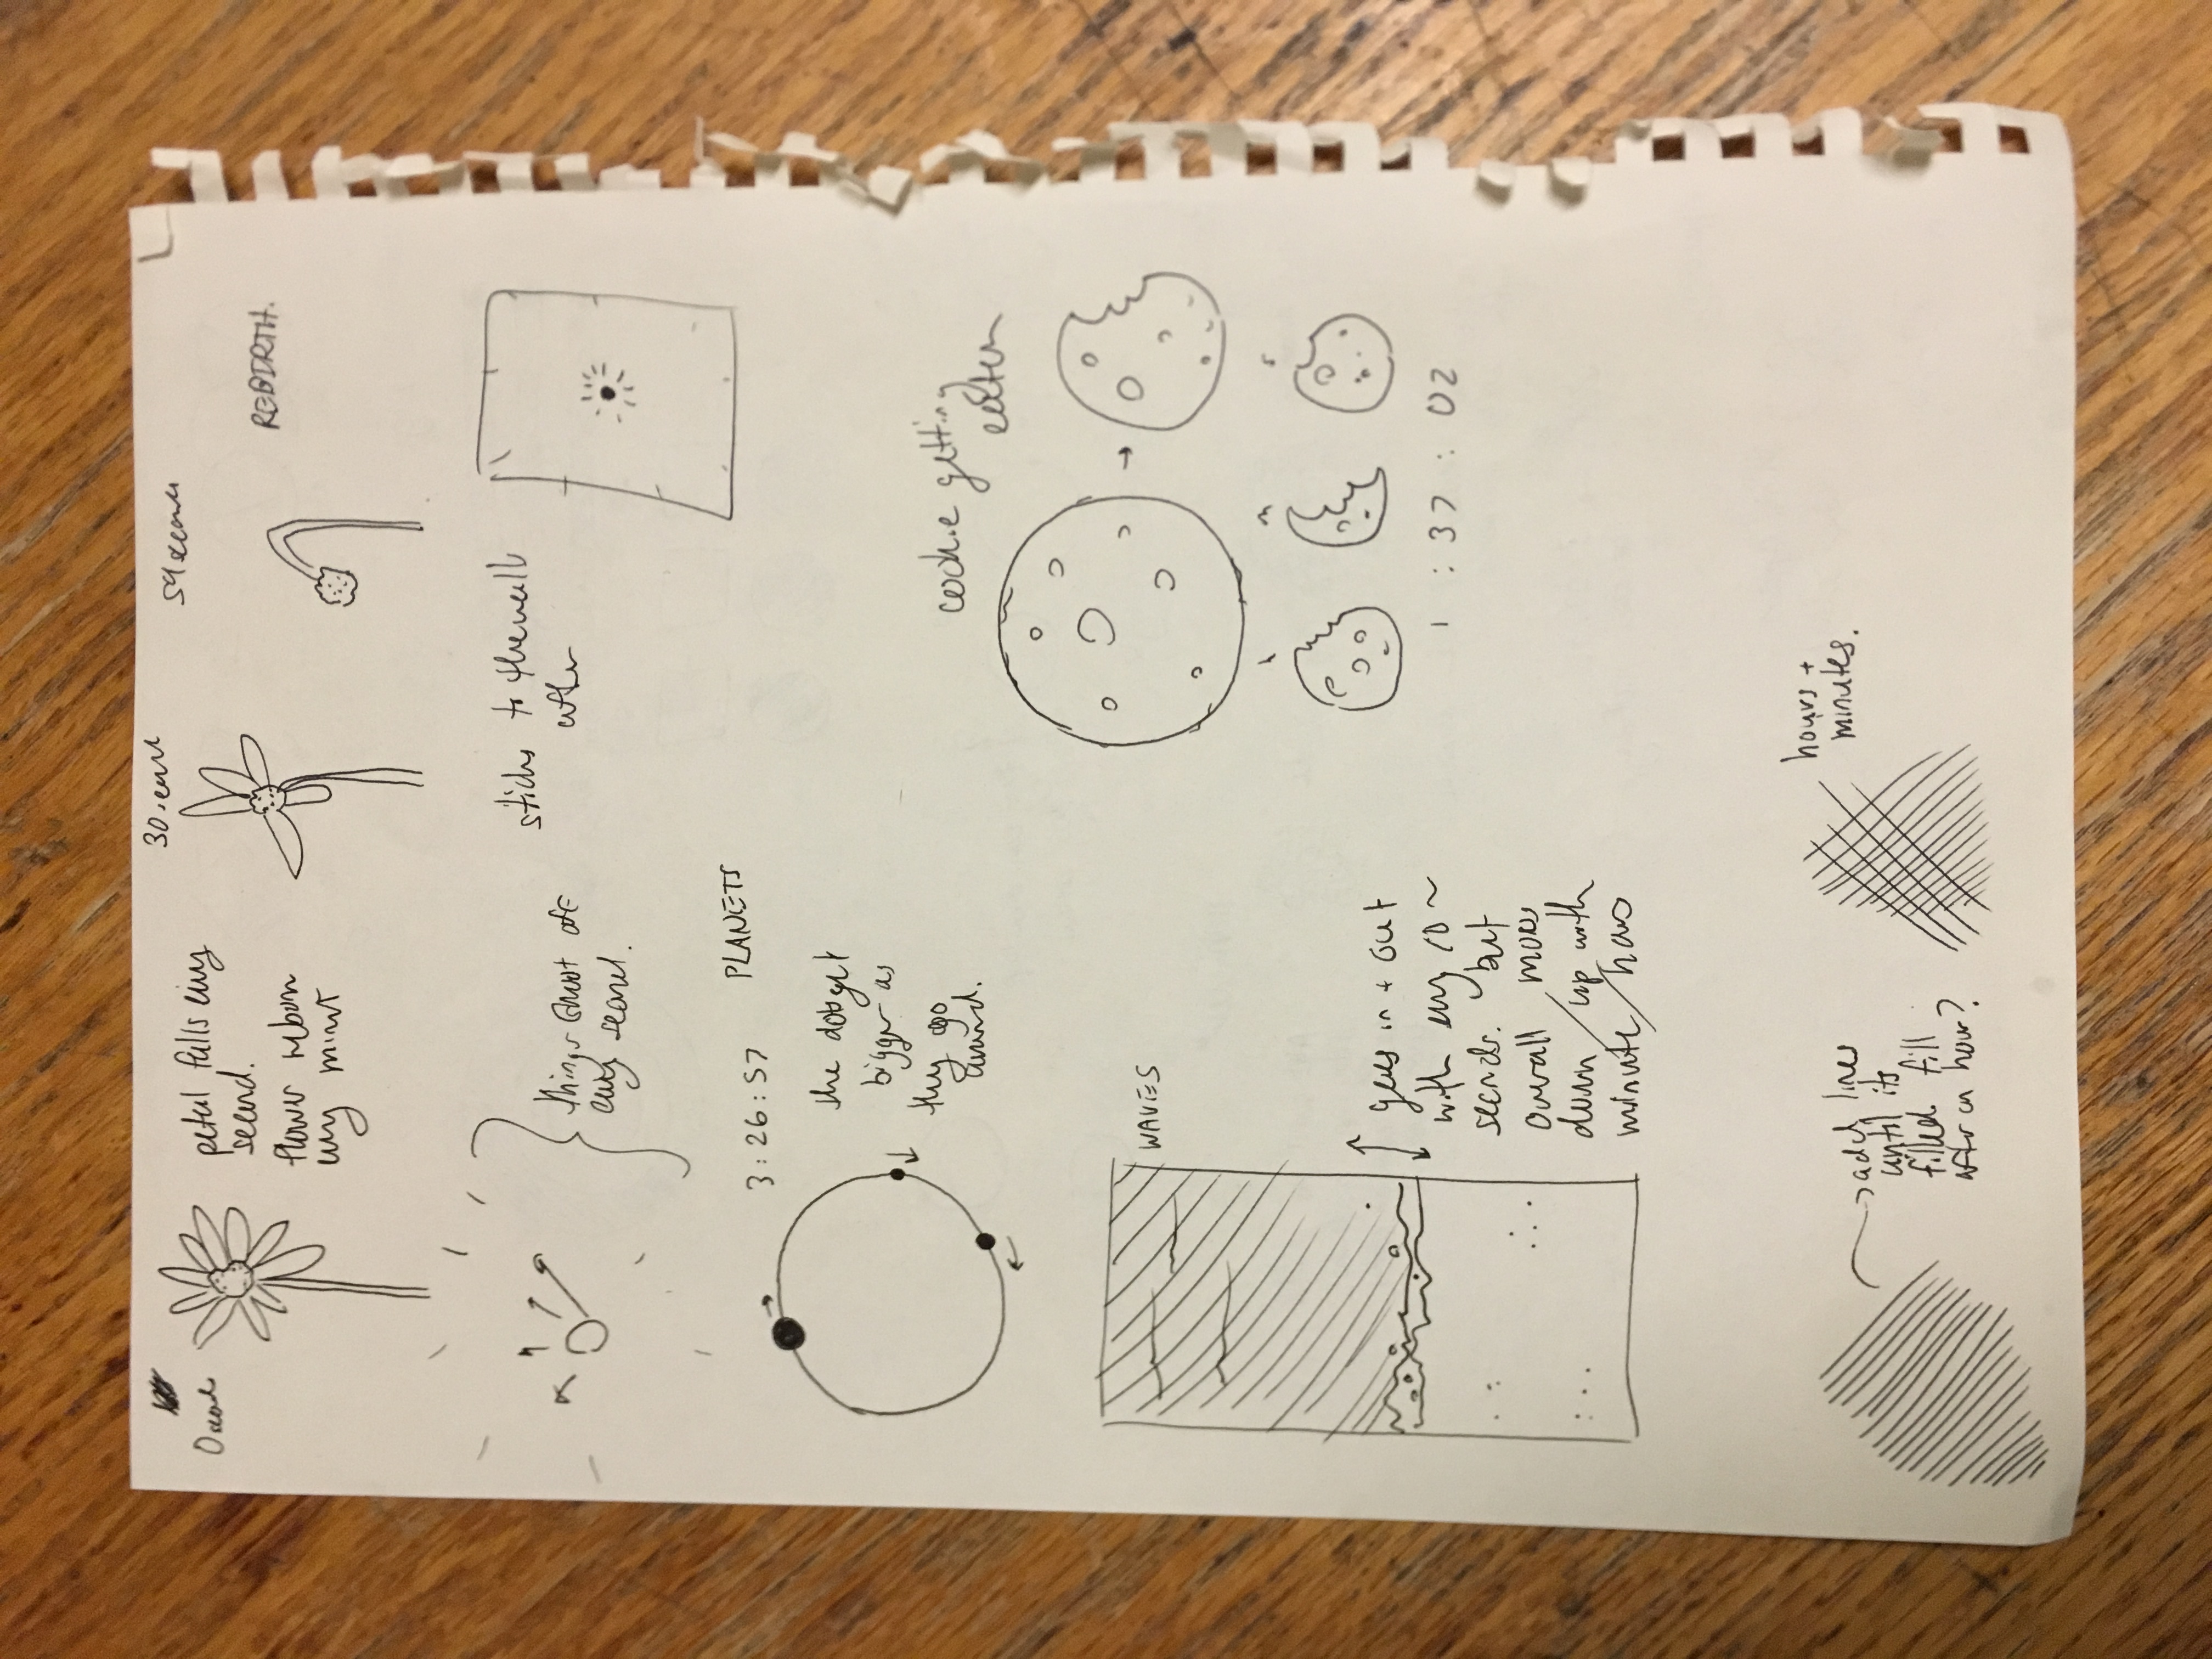 0 seconds
petal falls every
second.
flower reborn
every minut
30 second
59 seconds
REBIRTH.
things shoot off
every second.
sticks to the wall
after
3:26:57
PLANETS
the dots get
bigger as
they go
around.
cookie getting
eaten
1 : 37 : 02
WAVES
goes in + out
with every 10~
seconds. but
overall moves
down / up with
minute / hours
add lines
until its
filled. fill
after an hour?
hours +
minutes.